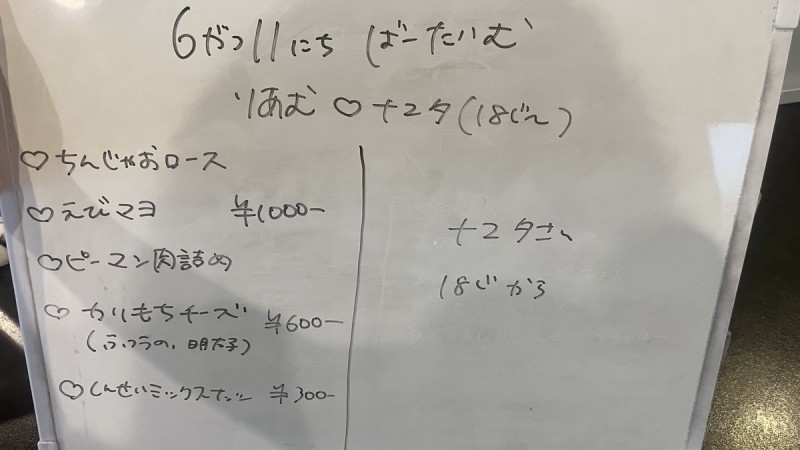 6がつ11にち ばーたいむ
りあむ♡ナユタ(18じ〜)
♡ちんじゃおロース
♡えびマヨ ¥1000-
♡ピーマン肉詰め
♡かりもちチーズ ¥600-
(ふつうの、明太子)
♡くんせいミックスナッツ ¥300-
ナユタさん
18じから